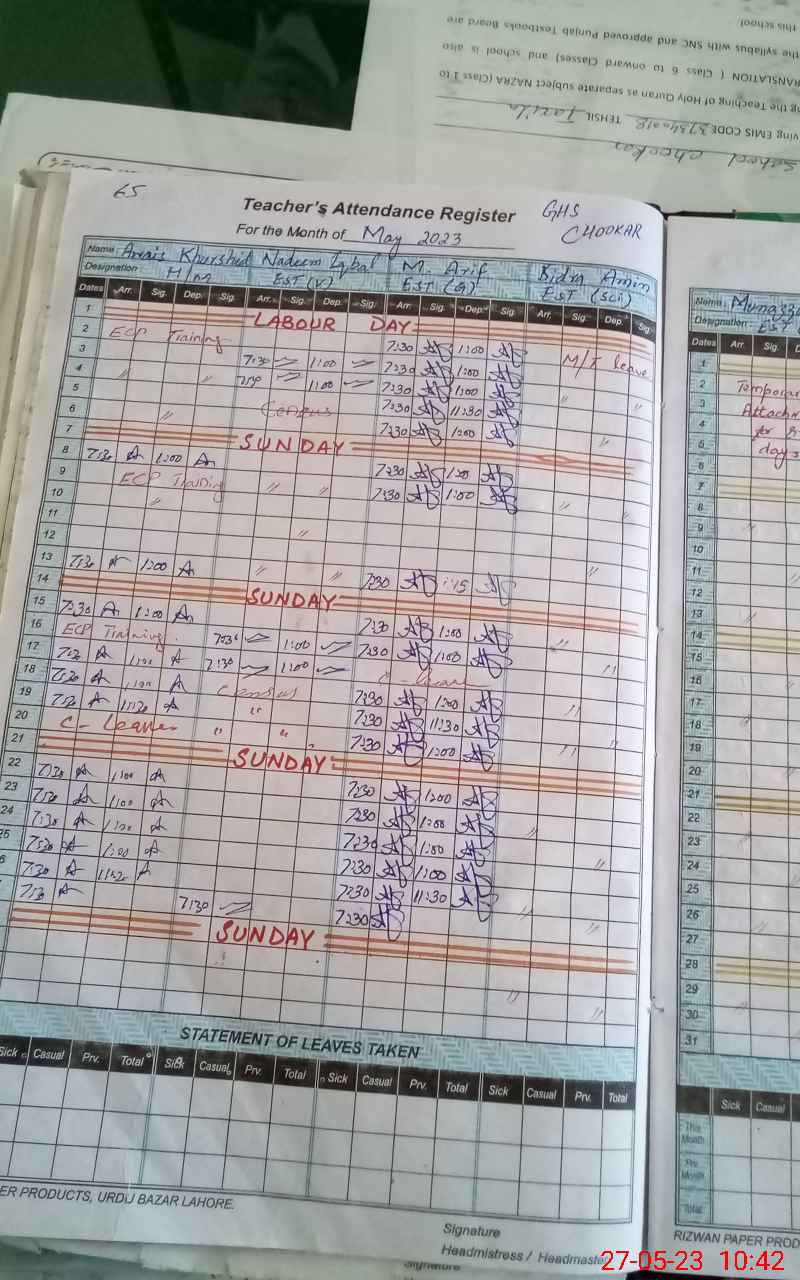 this school
the syllabus with SNC and approved Punjab Textbooks Board are
RANSLATION ( Class 6 to onward Classes) and school is also
ng the Teaching of Holy Quran as separate subject NAZRA (Class 1 to
ving EMIS CODE TEHSIL Taxila
School Chookar
65
Teacher's Attendance Register GHS
For the Month of May 2023 CHOOKAR
Name Awais Khurshid Nadeem Iqbal M. Arif Bidra Amin
Designation H/M EST (V) EST (A) EST (SCI)
Dates Arr. Sig. Dep. Sig. Arr. Sig. Dep. Sig. Arr. Sig. Dep. Sig. Arr. Sig. Dep. Sig.
1 LABOUR DAY
2 ECP Training 7:30 1:00 M/T leave
3 7:30 1:00 7:30 1:00
4 " " 7:30 1:00 7:30 1:00 " "
5 Census 7:30 11:30
6 " 7:30 1:00 "
7 SUNDAY
8 7:30 1:00 7:30 1:00
9 ECP Training " " 7:30 1:00
10 " " "
11
12 "
13 7:30 1:00 " " 7:30 1:15 "
14 SUNDAY
15 7:30 1:00 7:30 1:00
16 ECP Training. 7:30 1:00 7:30 1:00 "
17 7:30 1:00 7:30 1:00 C-leave "
18 7:30 1:00 Census 7:30 1:00
19 7:30 11:30 " 7:30 11:30 "
20 C-Leave " " 7:30 1:00 " "
21 SUNDAY
22 7:30 1:00 7:30 1:00
23 7:30 1:00 7:30 1:00
24 7:30 1:00 7:30 1:00 "
25 7:30 1:00 7:30 1:00 "
7:30 11:30 7:30 11:30
7:30 7:30 7:30 " "
SUNDAY
" "
STATEMENT OF LEAVES TAKEN
Sick Casual Prv. Total Sick Casual Prv. Total Sick Casual Prv. Total Sick Casual Prv. Total
ER PRODUCTS, URDU BAZAR LAHORE.
Signature
Headmistress / Headmaster
Signature
Name
Designation EST
Dates Arr. Sig.
1
2
3
4
5 days
6
7
8
9
10
11
12
13
14
15
16
17
18
19
20
21
22
23
24
25
26
27
28
29
30
31
Sick Casual
This Month
Prv. Month
Total
RIZWAN PAPER PROD
27-05-23 10:42